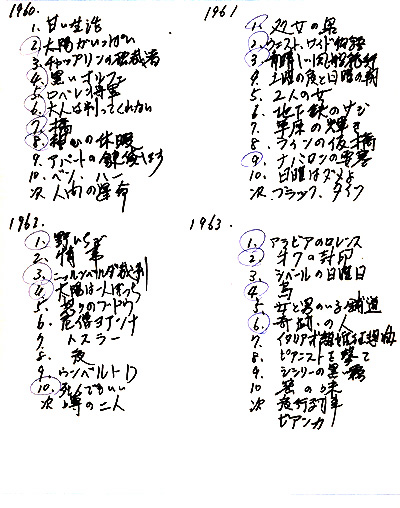 1960.
1. 甘い生活
2. 太陽がいっぱい
3. チャップリンの独裁者
4. 黒いオルフェ
5. ロベレ将軍
6. 大人は判ってくれない
7. 橋
8. 神の休暇
9. アパートの鍵貸します
10. ベン・ハー
次 人間の運命
1961
1. 処女の泉
2. ウェスト・サイド物語
3. 
4. 土曜の夜と日曜の朝
5. 2人の女
6. 地下鉄のザジ
7. 草原の輝き
8. ラインの仮橋
9. ナバロンの要塞
10. 日曜はダメよ
次 ブラック・タイツ
1962.
1. 野いちご
2. 情事
3. ニュールンベルグ裁判
4. 太陽は一人ぼっち
5. 怒りのブドウ
6. 尼僧ヨアンナ
7. ハスラー
8. 夜
9. ウンベルトD
10. 死んでもいい
次 噂の二人
1963.
1. アラビアのロレンス
2. の封印
3. シベールの日曜日
4. 鳥
5. 女と男のいる舗道
6. 奇跡の人
7. イタリア式離婚狂想曲
8. ピアニストを撃て
9. シシリーの黒い霧
10 蜜の味
次 夜行列車
ビアンカ